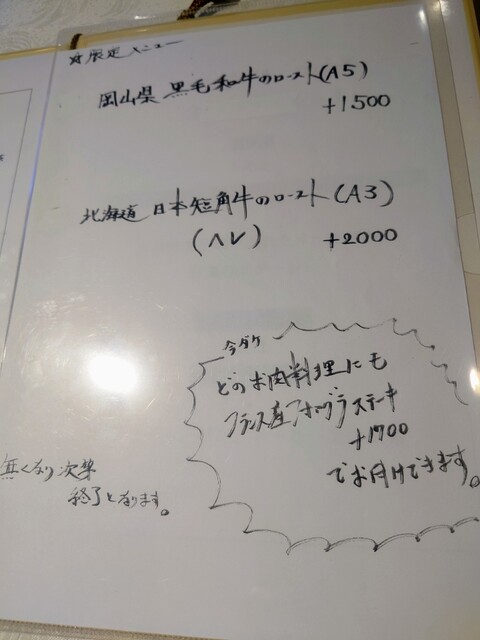 ☆限定メニュー
岡山県 黒毛和牛のロースト(A5)
+1,500
北海道 日本短角牛のロースト(A3)
(ヘレ) +2000
今ダケ
どのお肉料理にも
フランス産フォアグラステーキ
+1700
でお付けできます。
無くなり次第
終了となります。